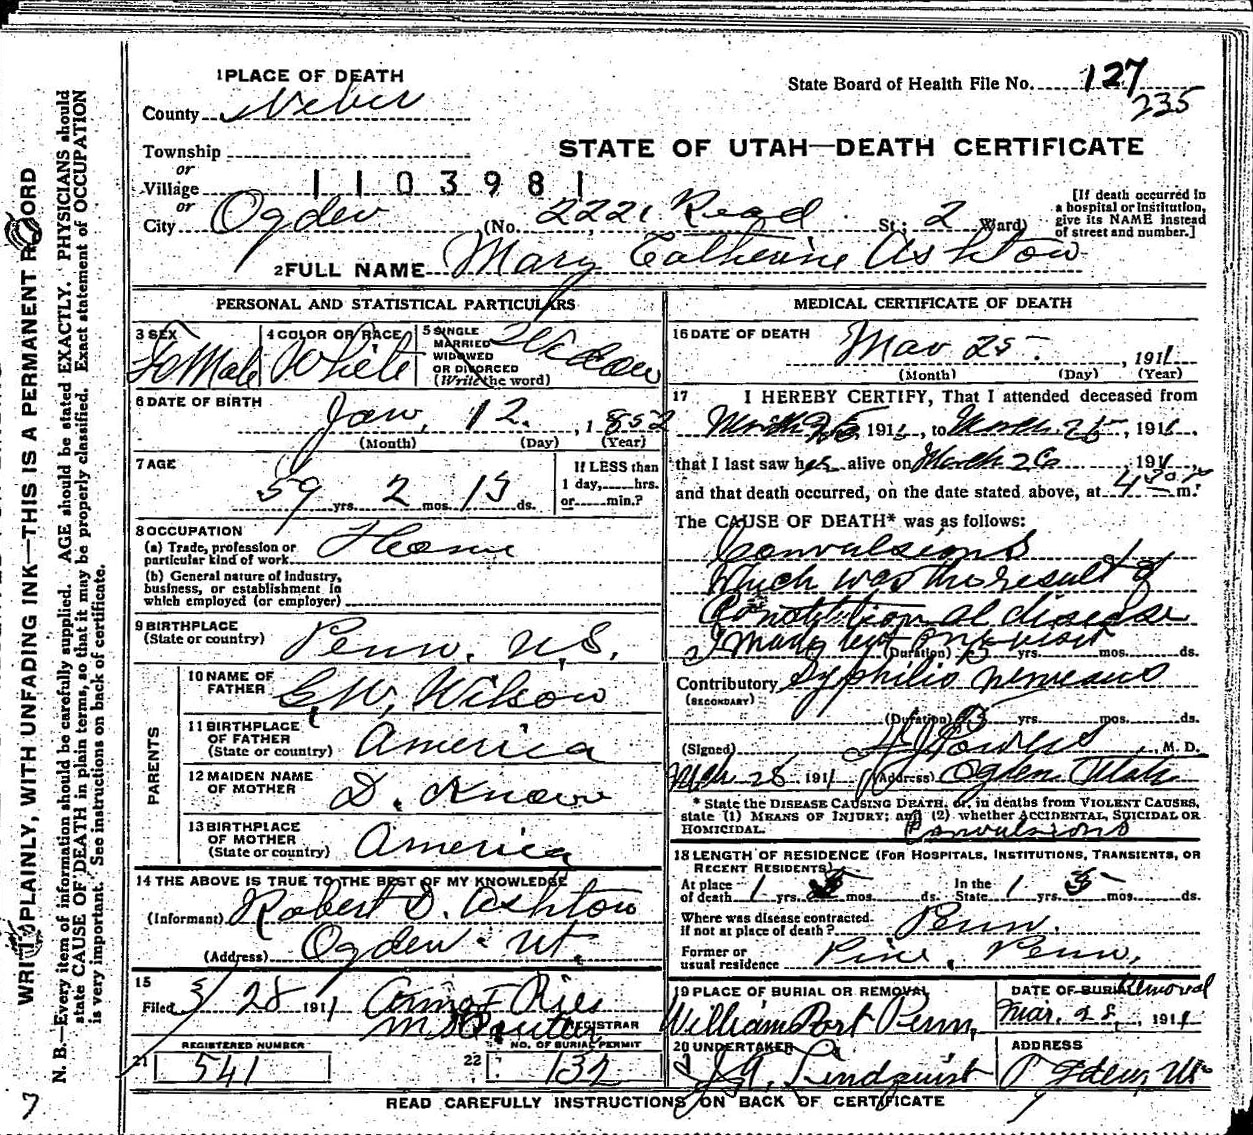 1 PLACE OF DEATH
County Weber
State Board of Health File No. 127
235
Township
or
Village
1103981
or
STATE OF UTAH—DEATH CERTIFICATE
City Ogden (No. 2221 Read St; 2 Ward)
[If death occurred in a hospital or institution, give its NAME instead of street and number.]
2 FULL NAME Mary Catherine Ashton
PERSONAL AND STATISTICAL PARTICULARS
3 SEX FeMale
4 COLOR OR RACE White
5 SINGLE MARRIED WIDOWED OR DIVORCED (Write the word) Widow
6 DATE OF BIRTH Jan, 12. , 1852
(Month) (Day) (Year)
7 AGE 59 yrs. 2 mos. 13 ds.
If LESS than 1 day, hrs. or min.?
8 OCCUPATION
(a) Trade, profession or particular kind of work Home
(b) General nature of industry, business, or establishment in which employed (or employer)
9 BIRTHPLACE (State or country) Penn. U.S.
PARENTS
10 NAME OF FATHER G.W. Wilson
11 BIRTHPLACE OF FATHER (State or country) America
12 MAIDEN NAME OF MOTHER D. Know
13 BIRTHPLACE OF MOTHER (State or country) America
14 THE ABOVE IS TRUE TO THE BEST OF MY KNOWLEDGE
(Informant) Robert D. Ashton
(Address) Ogden Ut.
15
Filed 3/28 1911
REGISTRAR
21 REGISTERED NUMBER 541
22 NO. OF BURIAL PERMIT 132
MEDICAL CERTIFICATE OF DEATH
16 DATE OF DEATH Mar 25. , 1911
(Month) (Day) (Year)
17 I HEREBY CERTIFY, That I attended deceased from
March 25 1911, to March 25, 1911,
that I last saw her alive on March 26 1911
and that death occurred, on the date stated above, at 4 30 P m.
The CAUSE OF DEATH* was as follows:
Convulsions
Which was the result of
Constitutional disease
I made but one visit
(Duration) 15 yrs. mos. ds.
Contributory Syphilis
(SECONDARY)
(Duration) yrs. mos. ds.
(Signed) Powers, M. D.
Mch 28 1911 (Address) Ogden Utah
* State the DISEASE CAUSING DEATH, or, in deaths from VIOLENT CAUSES, state (1) MEANS OF INJURY; and (2) whether ACCIDENTAL, SUICIDAL OR HOMICIDAL. Convulsions
18 LENGTH OF RESIDENCE (FOR HOSPITALS, INSTITUTIONS, TRANSIENTS, OR RECENT RESIDENTS)
At place of death 1 yrs. mos. ds. In the State 1 yrs. 5 mos. ds.
Where was disease contracted, if not at place of death? Penn.
Former or usual residence Pine, Penn,
19 PLACE OF BURIAL OR REMOVAL
William Port Penn,
DATE OF BURIAL Removal
Mar. 28, 1911
20 UNDERTAKER
Lindquist
ADDRESS
Ogden Ut
READ CAREFULLY INSTRUCTIONS ON BACK OF CERTIFICATE
WRITE PLAINLY, WITH UNFADING INK—THIS IS A PERMANENT RECORD
N. B.—Every item of information should be carefully supplied. AGE should be stated EXACTLY. PHYSICIANS should
state CAUSE OF DEATH in plain terms, so that it may be properly classified. Exact statement of OCCUPATION
is very important. See instructions on back of certificate.
7